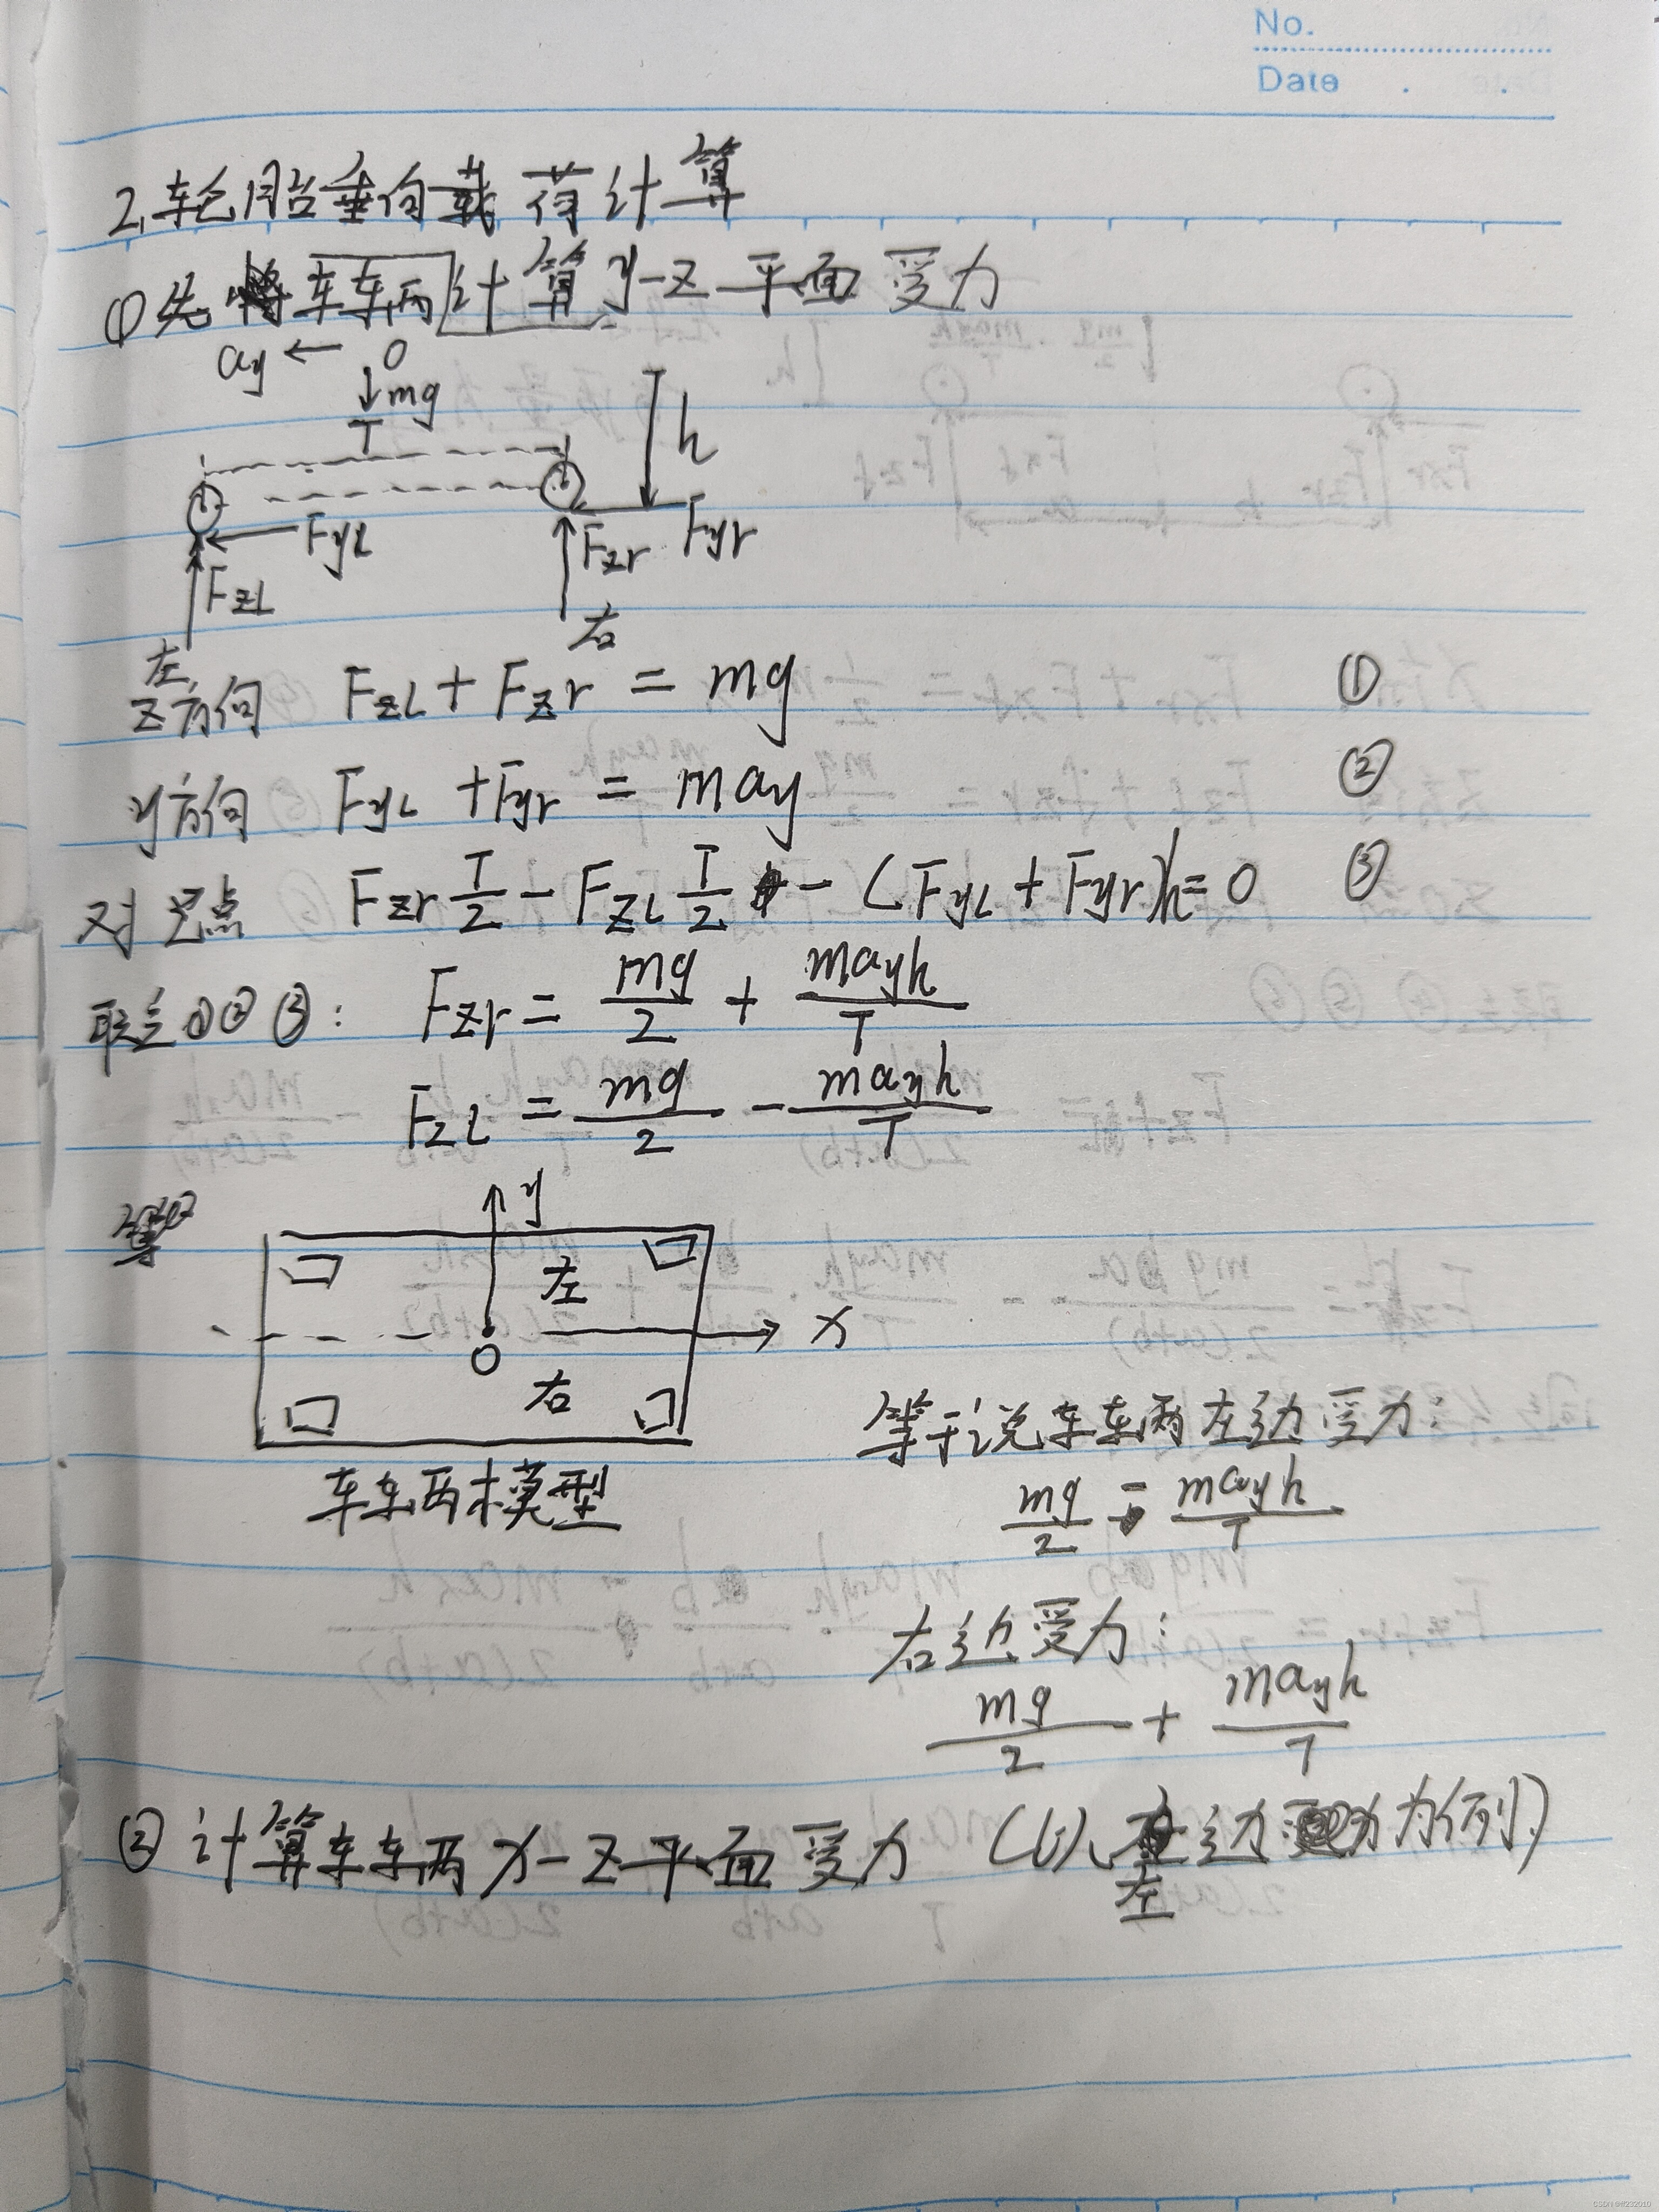 No.
Date . .
2,轮胎垂向载荷计算
①先车辆计算y-z平面受力
ay ← O
↓mg
T
h
FyL
Fzr Fyr
FzL
右
左
z方向 FzL + Fzr = mg ①
y方向 FyL + Fyr = may ②
对O点 Fzr T/2 - FzL T/2 - (FyL + Fyr)h = 0 ③
联立①②③: Fzr = mg/2 + mayh/T
FzL = mg/2 - mayh/T
y
左
x
O
右
等于说车辆左边受力:
车辆模型
mg/2 - mayh/T
右边受力:
mg/2 + mayh/T
②计算车辆x-z平面受力 (以左边为例)
CSDN @ltl232010